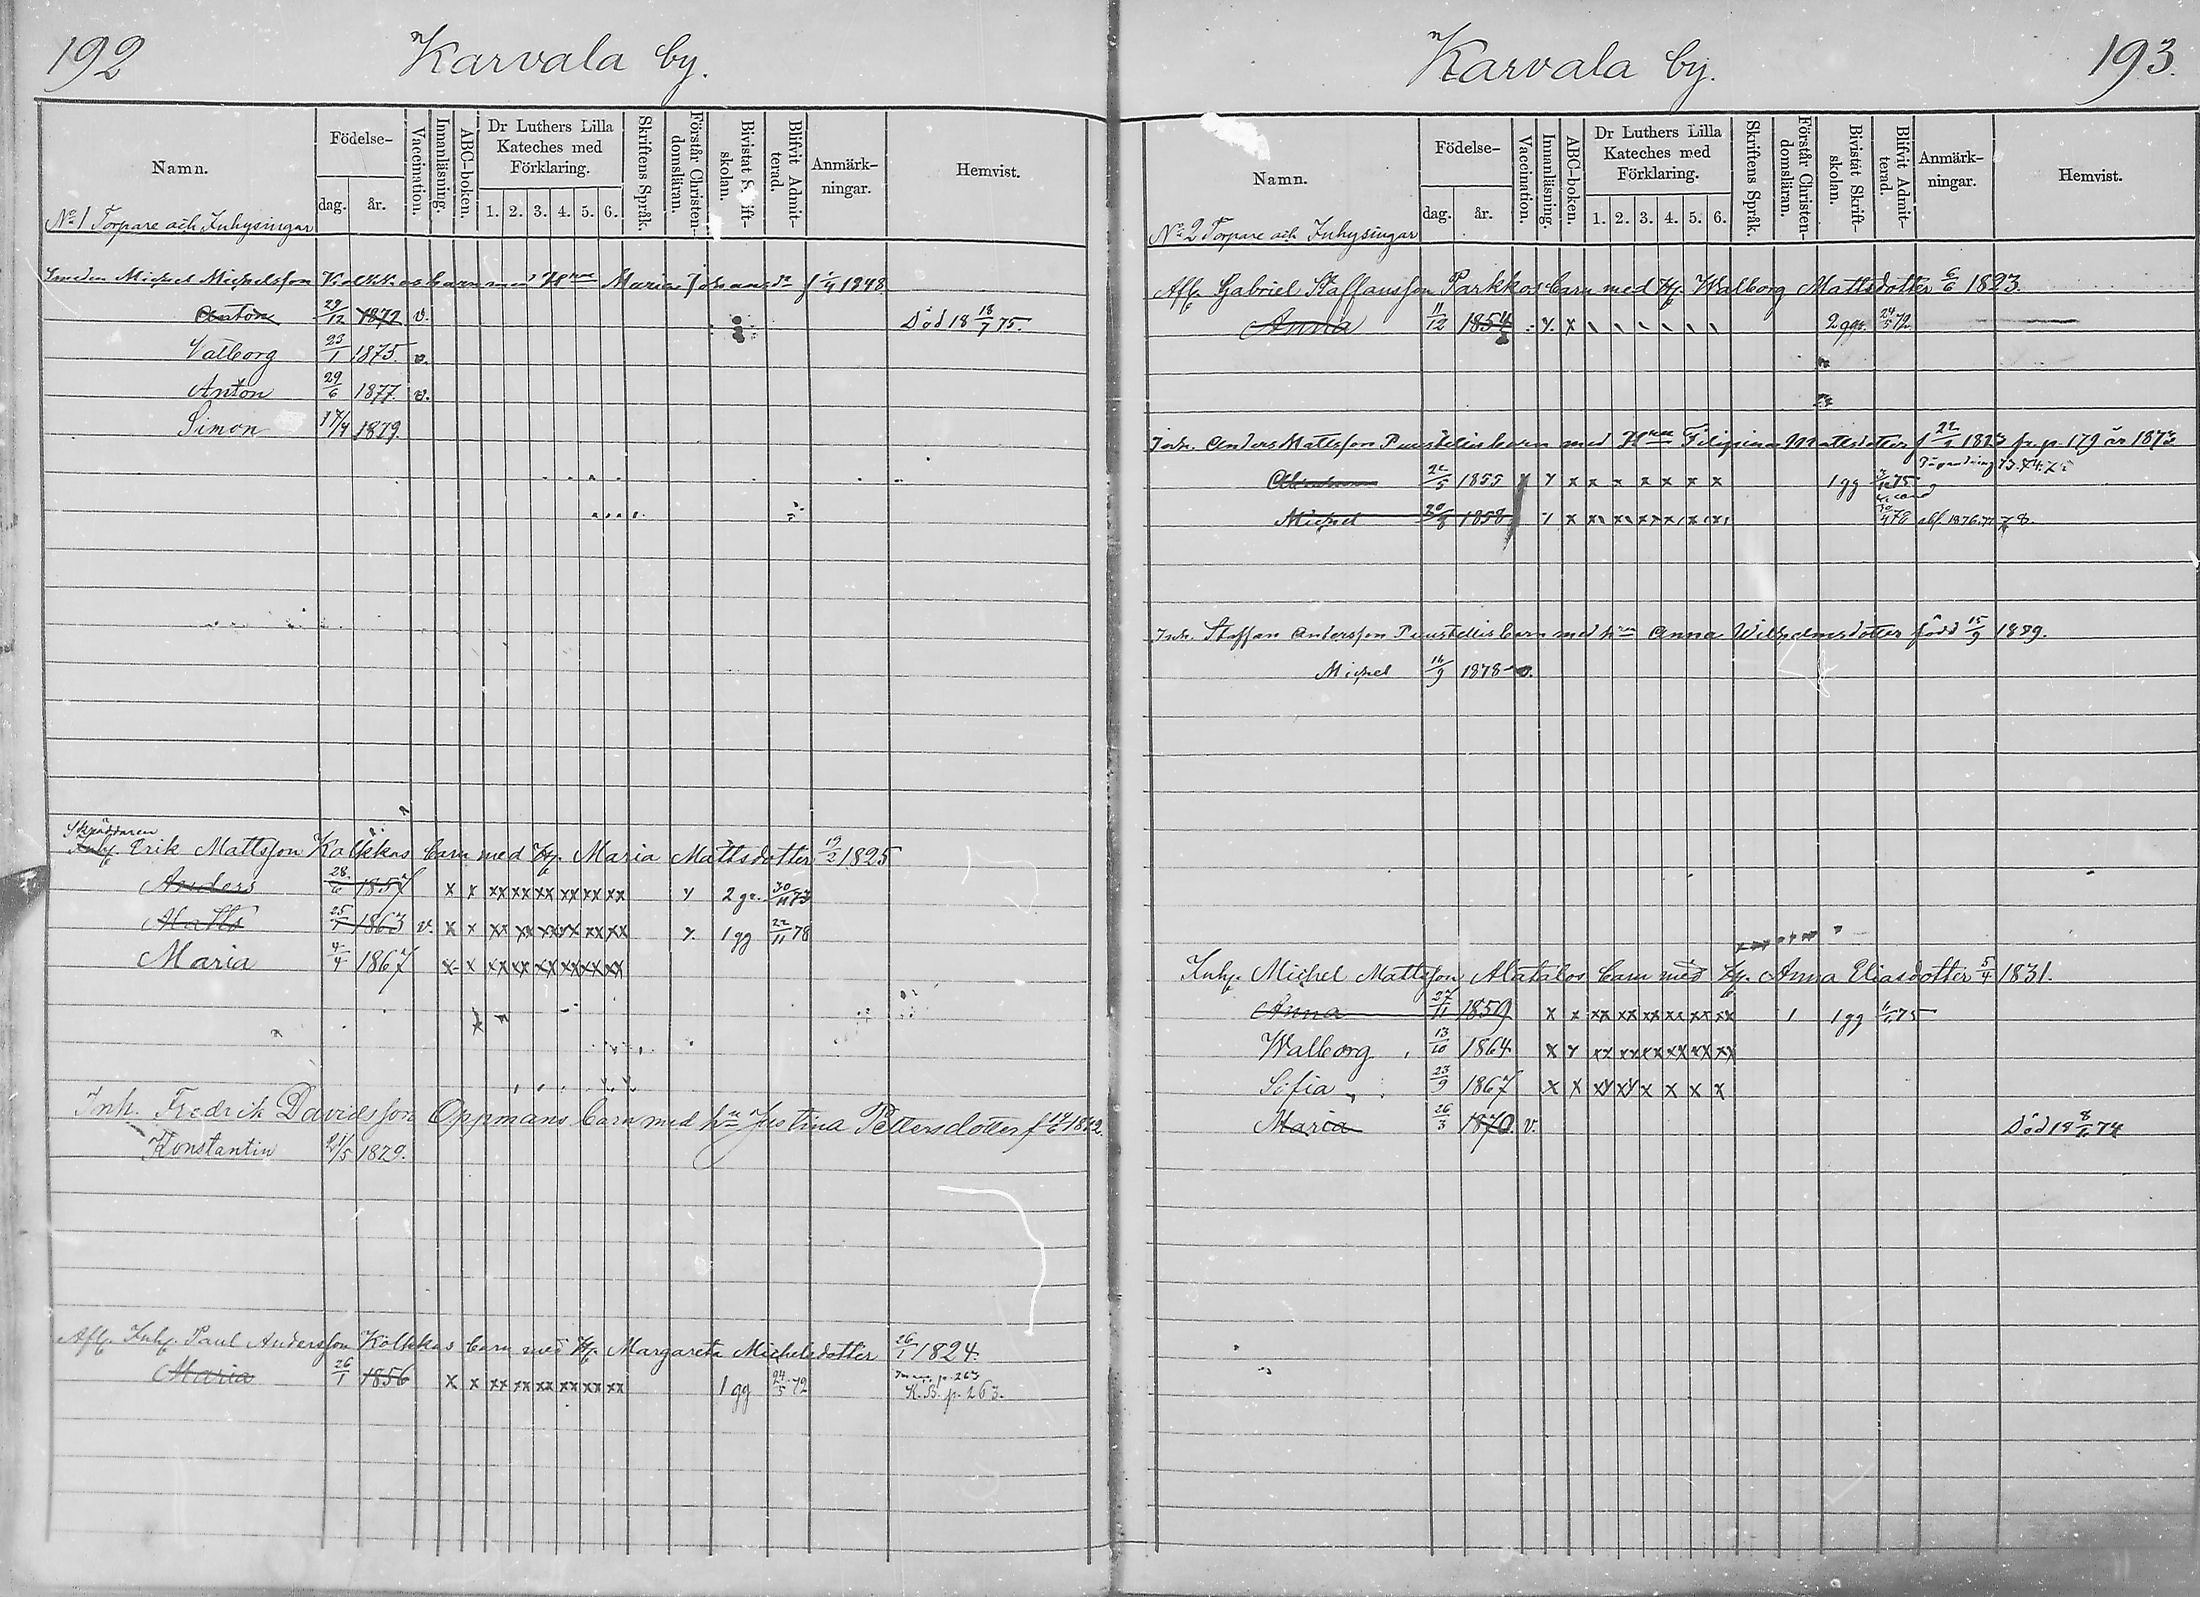 192
Karvala by.
Namn.
Födelse-
dag.
år.
Vaccination.
Innanläsning.
ABC-boken.
Dr Luthers Lilla
Kateches med
Förklaring.
1. 2. 3. 4. 5. 6.
Skriftens Språk.
Förstår Christen-
domsläran.
Bivistat Skrift-
skolan.
Blifvit Admit-
terad.
Anmärk-
ningar.
Hemvist.
No 1 Torpare och Inhysingar
Smeden Michel Michelsson Kolkkas barn med Hru Maria Johansdr f 1/4 1848
Anton 29/12 1872 v. Död 18 18/7 75.
Valborg 25/1 1875. v.
Anton 29/6 1877 v.
Simon 17/4 1879.
Skräddaren
Inh. Erik Mattsson Kolkkas barn med H. Maria Mattsdotter 19/2 1825
Anders 28/6 1857 x x xx xx xx xx xx xx y 2 gr. 30/11 73
Matts 25/1 1863 v. x x xx xx xx xx xx xx y. 1 gg 22/11 78
Maria 4/4 1867 x x xx xx xx xx xx xx
Inh. Fredrik Davidsson Oppmans barn med hn Justina Pettersdotter
Konstantin 21/5 1879.
Afl. Inh. Paul Andersson Kolkkas barn med H. Margareta Michelsdotter 26/1 1824.
Maria 26/1 1856 x x xx xx xx xx xx xx 1 gg 24/5 72 K.B. p. 263.
193.
Karvala by.
Namn.
Födelse-
dag.
år.
Vaccination.
Innanläsning.
ABC-boken.
Dr Luthers Lilla
Kateches med
Förklaring.
1. 2. 3. 4. 5. 6.
Skriftens Språk.
Förstår Christen-
domsläran.
Bivistat Skrift-
skolan.
Blifvit Admit-
terad.
Anmärk-
ningar.
Hemvist.
No 2 Torpare och Inhysingar
Afl. Gabriel Staffansson Parkkos barn med H. Walborg Mattsdotter 6/6 1823.
Anna 11/12 1854 2 ggr. 24/5 72
Inh. Anders Mattsson Puustellis barn med Hru Filipina Mattsdotter fr. p. 179 år 1873
22/5 1855 y x x x x x x x 1 gg 75
Michel 1858 x 78.
Inh. Staffan Andersson Puustellis barn med hru Anna Wilhelmsdotter född 15/9 1889.
Michel 16/9 1878 v.
Inh. Michel Mattsson Alatalos barn med H. Anna Eliasdotter 5/4 1831.
Anna 27/11 1859 x x xx xx xx xx xx xx 1 1 gg 75
Walborg 13/10 1864 x y xx xx xx xx xx xx
Sofia 23/9 1867 x x xy xy x x x x
Maria 26/3 1870. v. Död 18 8/6 74